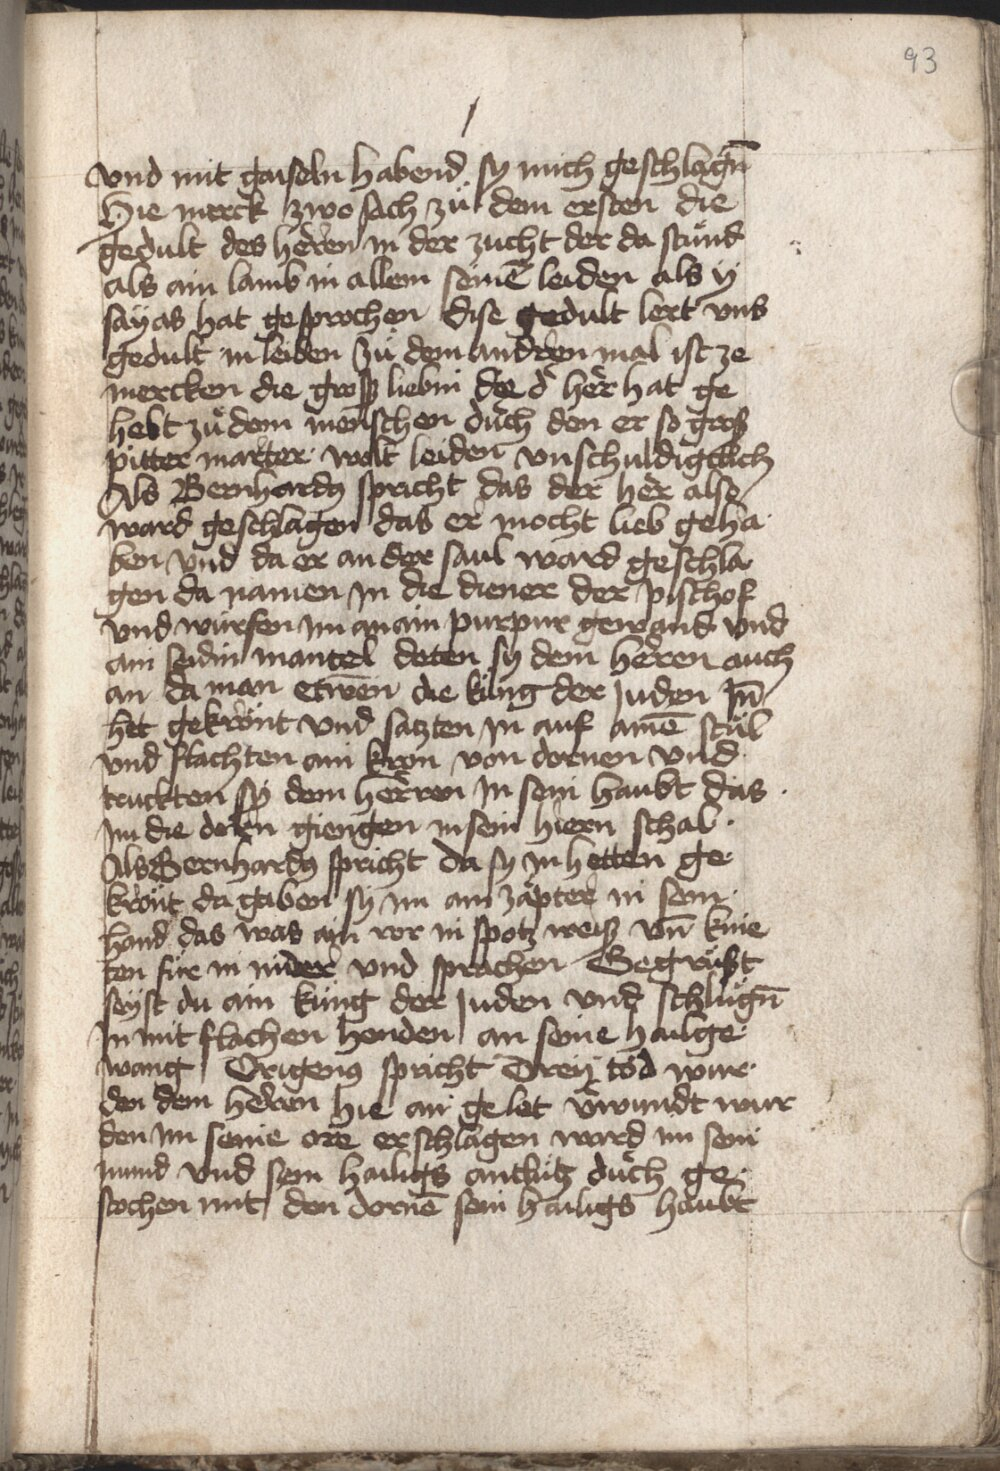 93
vnd mit gaiseln habend sy mich geschlagn̄
Hie merck zwo sach zů dem ersten die
gedult des herren in der zucht der da stůnd
als ain lamb in allem seinē leiden als ÿ
saÿas hat gesprochen dise gedult lert vns
gedult in leiden zů dem andren mal ist ze
mercken die gross liebin die d' her hat ge
hebt zů dem menschen duch den er so gros
pitter marter wolt leiden vnschuldigclich
Als Bernhardꝰ spricht das der her also
ward geschlagen das er mocht lieb geha
ben vnd da er an der saul ward geschla
gen da namen in die diener der pischof
vnd wurfen im an ain purpur gewand vnd
ain seidin mantel deten sy dem herren auch
an da man etwen die küng der Juden In̄
het gekrönt vnd satzten in auf ainē stůl
vnd flachten ain kron von dornen vnd
truckten sy dem herren In sein haubt das
Im die doren giengen in sein hiern schal
Als Bernhardꝰ spricht da sy in hetten ge
krönt da gaben sy im ain zäpter in sein
hand das was ain ror in spotz weisz vn̄ knie
ten für in nider vnd sprachen Gegrüst
seÿst du ain küng der Juden vnd schlůgn̄
In mit flachen henden an seine hailge
wang Origenꝰ spricht Dreÿ töd wur
den dem herren hie an gelet v'wundt wur
den im seine ore erschlagen ward im sein
mund vnd sein hailigs antlütz duch ge
stochen mit den dornē sein hailigs haubt